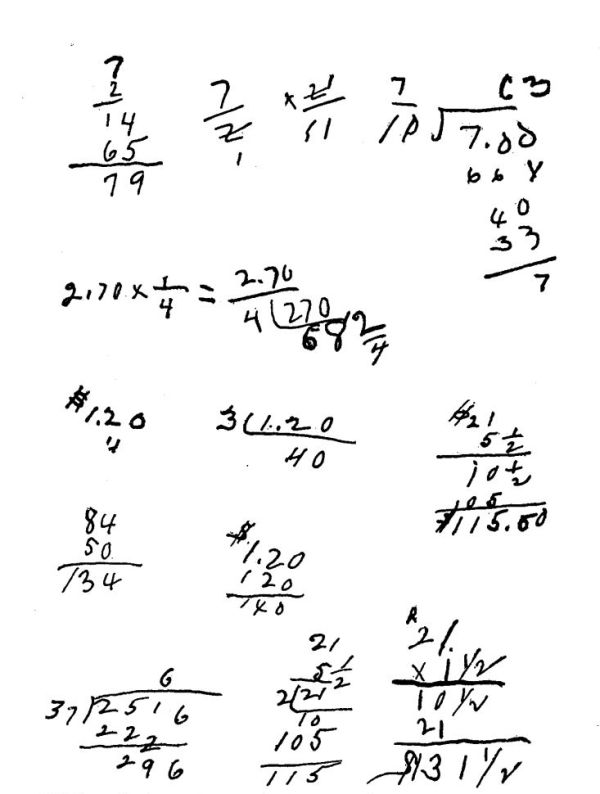 7
2
14
65
79
7/2 1
× 21/11
7/10
63
7.00
66
40
33
7
2.70 × 1/4 = 2.70/4
4 270
68 2/4
$1.20
4
3 1.20
40
$21
5 1/2
10 1/2
105
$115.50
84
50
134
$1.20
120
140
6
37 2516
222
296
21
5 1/2
2 21
10
105
115
21.
× 1 1/2
10 1/2
21
$131 1/2